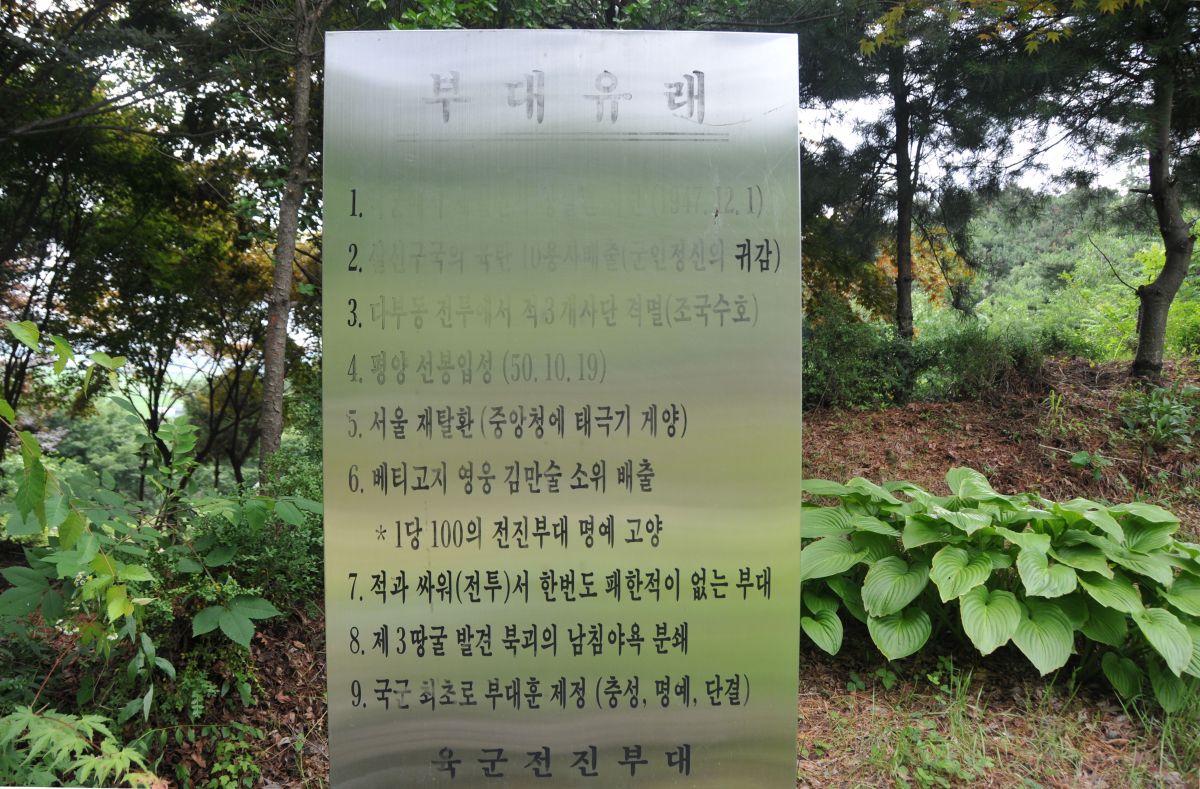 부대유래
1. (1947. 12. 1)
2. 살신구국의 육탄 10용사배출(군인정신의 귀감)
3. 다부동 전투에서 적3개사단 격멸(조국수호)
4. 평양 선봉입성 (50. 10. 19)
5. 서울 재탈환 (중앙청에 태극기 게양)
6. 베티고지 영웅 김만술 소위 배출
* 1당 100의 전진부대 명예 고양
7. 적과 싸워(전투)서 한번도 패한적이 없는 부대
8. 제3땅굴 발견 북괴의 남침야욕 분쇄
9. 국군 최초로 부대훈 제정 (충성, 명예, 단결)
육군전진부대